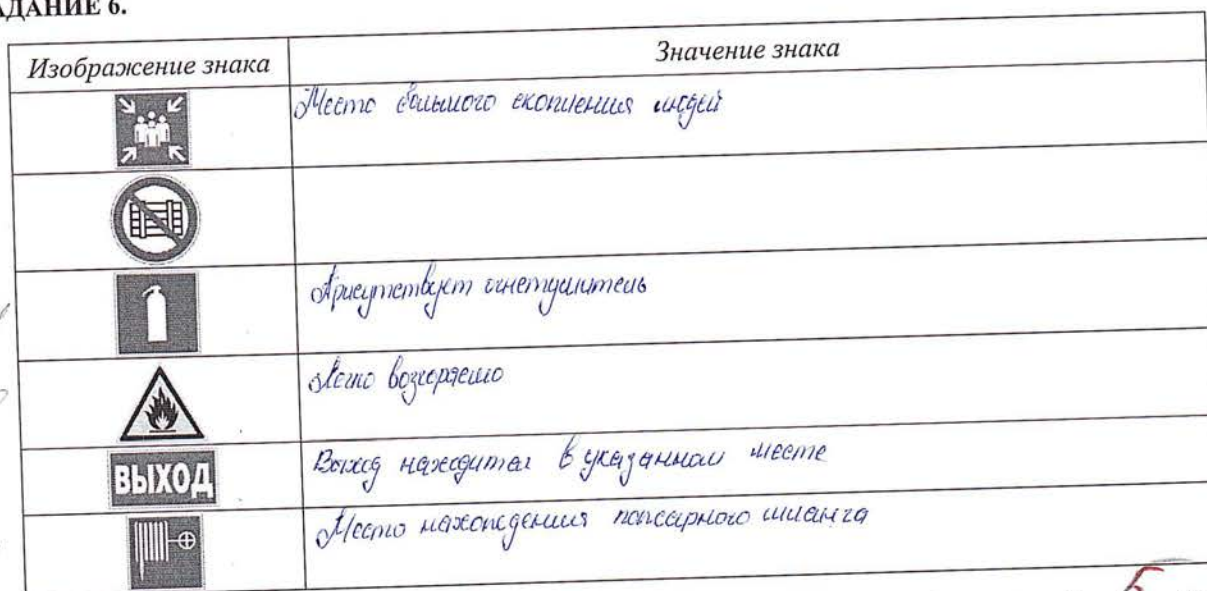 ЗАДАНИЕ 6.
Изображение знака Значение знака
Место большого скопления людей
Присутствует огнетушитель
Легко возгораемо
ВЫХОД Выход находится в указанном месте
Место нахождения пожарного шланга
5